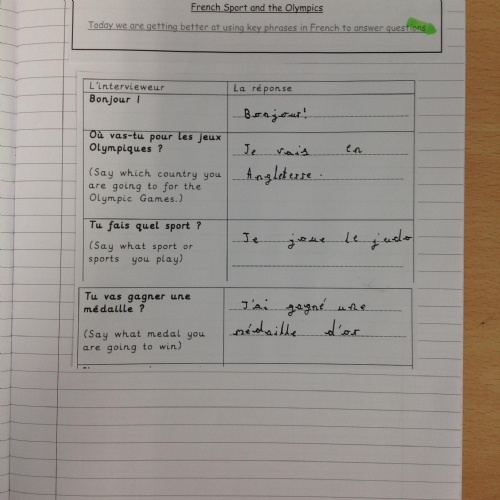 French Sport and the Olympics
Today we are getting better at using key phrases in French to answer questions.
L'intervieweur
La réponse
Bonjour !
Bonjour!
Où vas-tu pour les jeux
Olympiques ?
(Say which country you
are going to for the
Olympic Games.)
Je vais en
Angleterre.
Tu fais quel sport ?
(Say what sport or
sports you play)
Je joue le judo
Tu vas gagner une
médaille ?
(Say what medal you
are going to win)
J'ai gagné une
médaille d'or